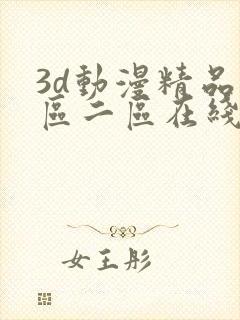 3d動漫精品
區二區在綫
女王彤